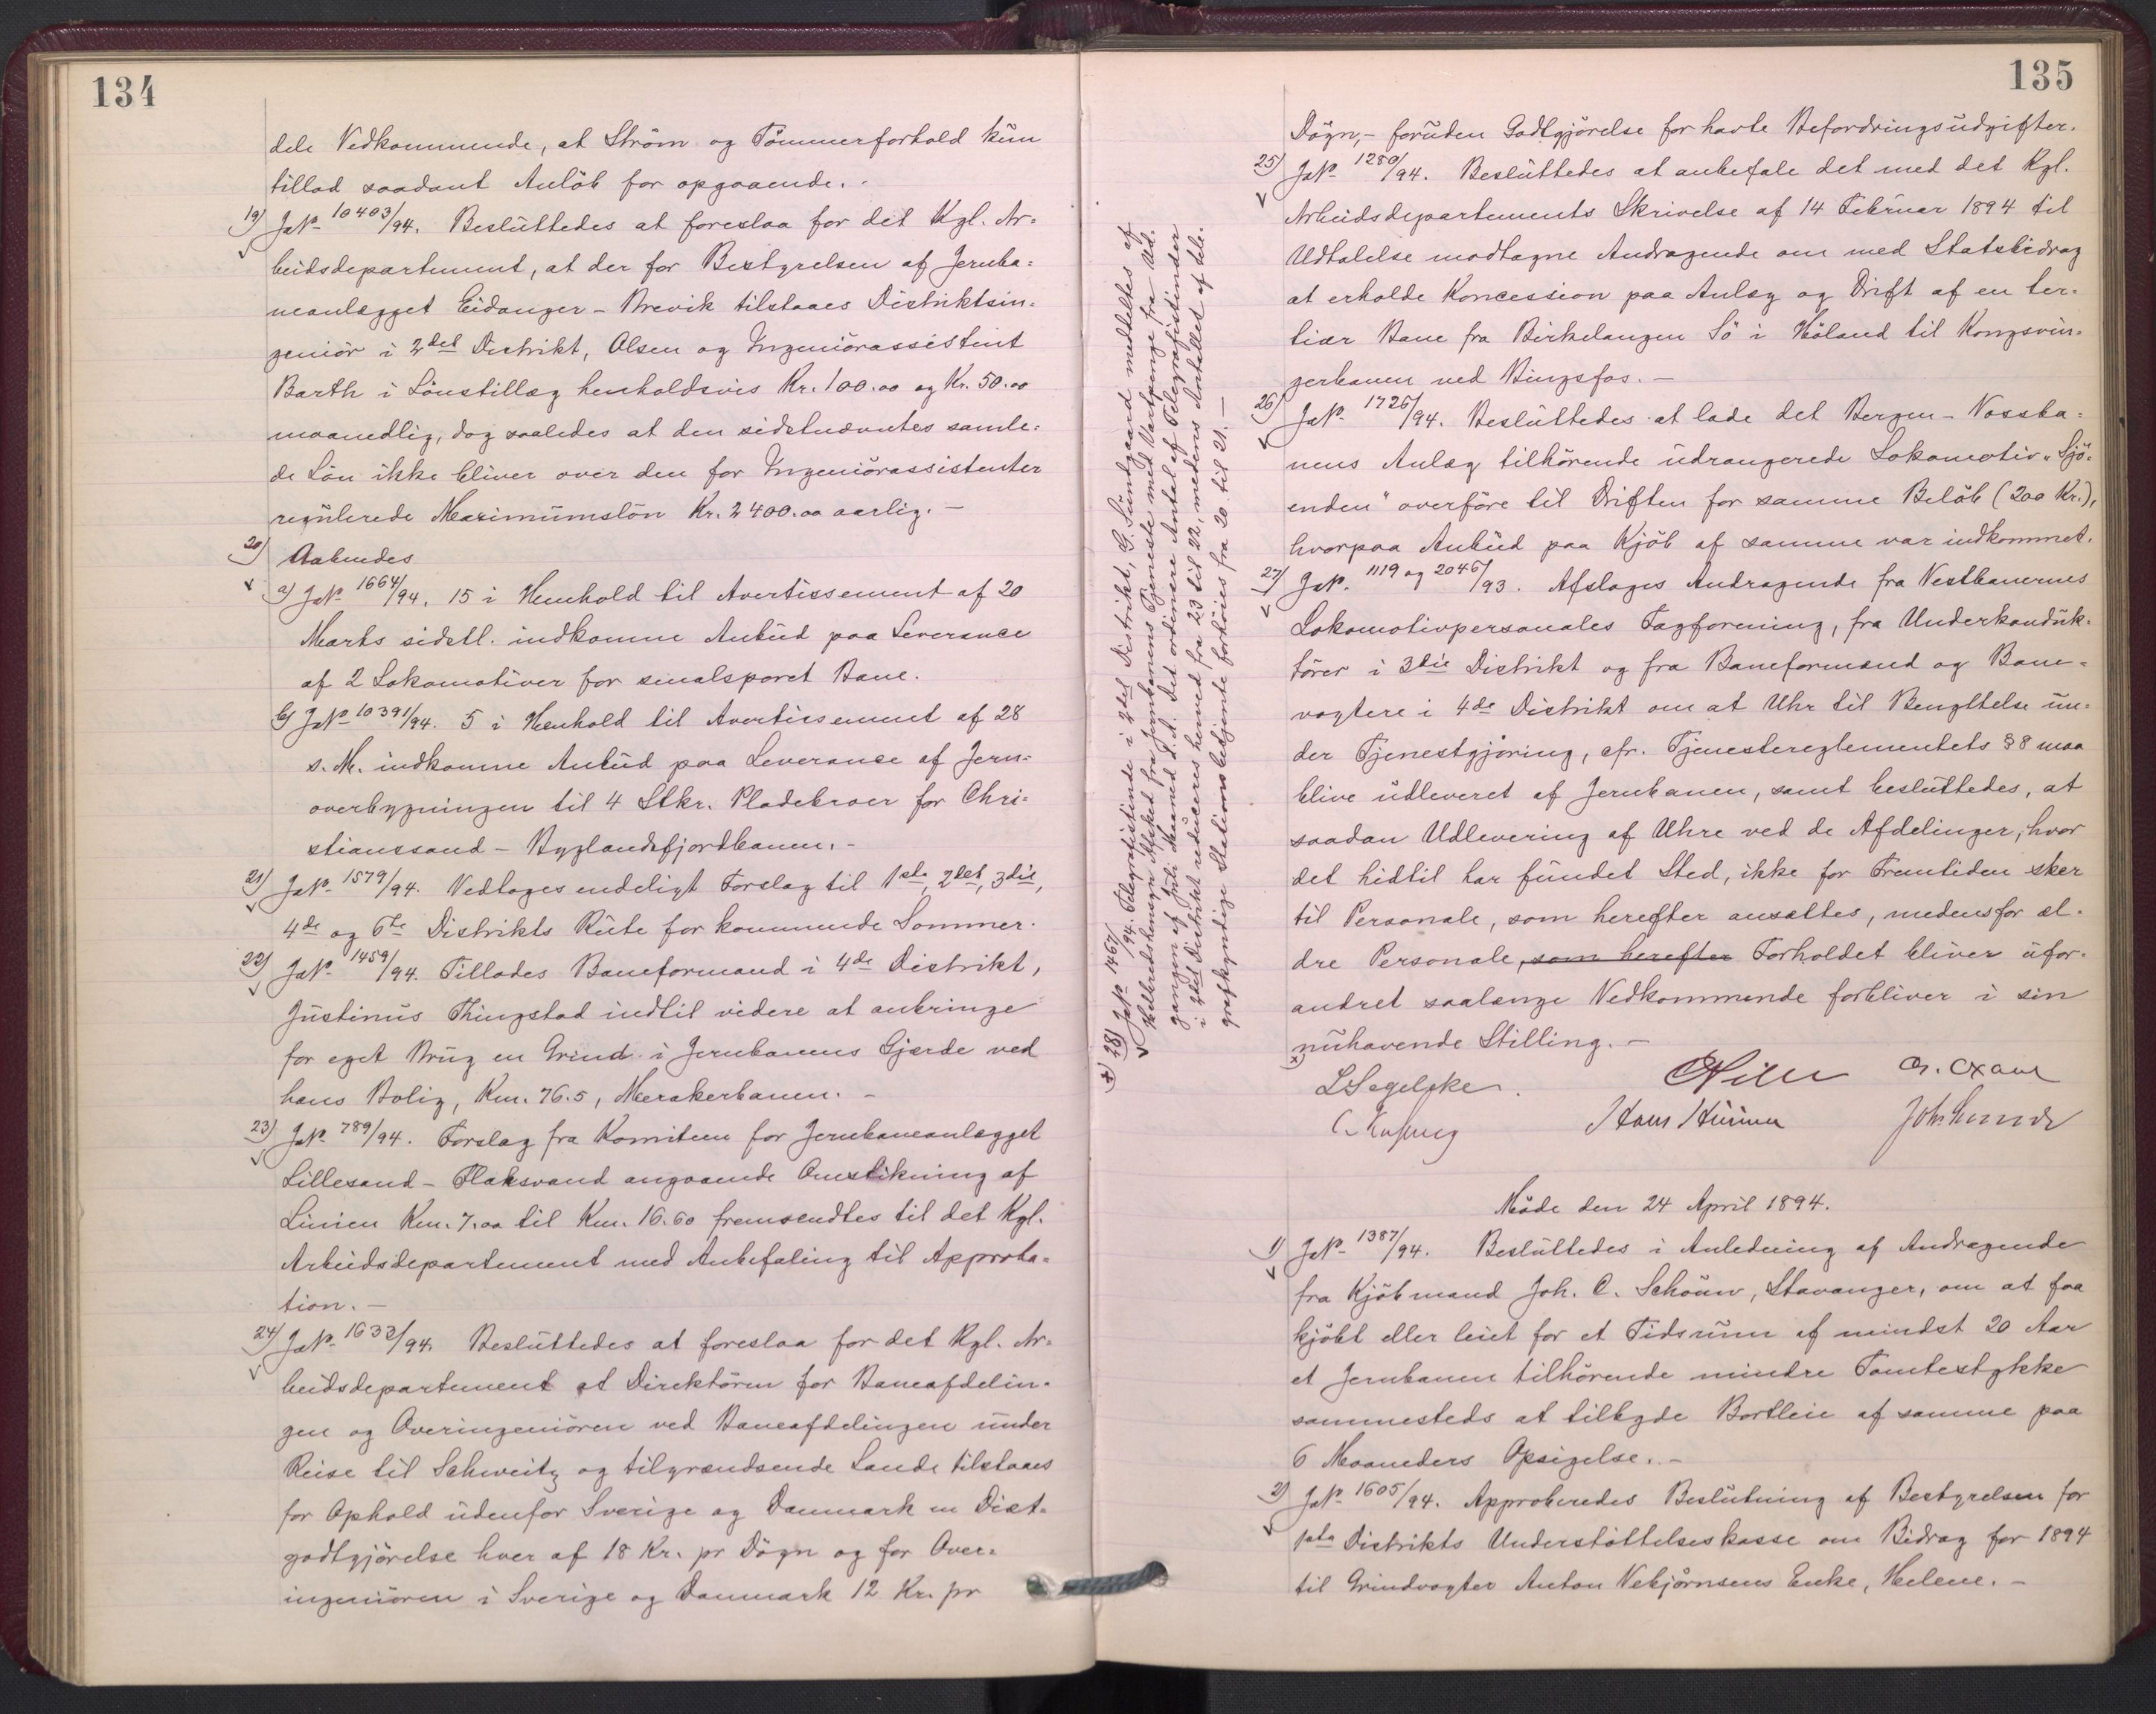 134
dels Vedkommende, at Ström og Tömmerforhold kun
tillod saadant Anlöb for opgaaende.-
19) JNo 10403/94. Besluttedes at foreslaa for det Kgl. Ar=
beidsdepartement, at der for Bestyrelsen af Jernba=
neanlægget Eidanger - Brevik tilstaaes Distriktsin=
geniör i 2det Distrikt, Olsen og Ingeniörassistent
Barth i Lönstillæg henholdsvis Kr. 100.00 og Kr. 50.00
maanedlig, dog saaledes at den sidstnævntes samle=
de Lön ikke bliver over den for Ingeniörassistenter
regulerede Maximumslön Kr. 2400.00 aarlig.-
20) Aabnedes
a) JNo 1664/94. 15 i Henhold til Avertissement af 20
Marts sidstl. indkomne Anbud paa Leverance
af 2 Lokomotiver for smalsporet Bane.
b) JNo 10391/94. 5 i Henhold til Avertissement af 28
s. M. indkomne Anbud paa Leverance af Jern=
overbygningen til 4 Stkr. Pladebroer for Chri=
stianssand - Byglandsfjordbanen.-
21) JNo 1579/94. Vedtoges endeligt Forslag til 1ste, 2det, 3die,
4de og 6te Distrikts Rute for kommende Sommer.
22) JNo 1459/94. Tillodes Baneformand i 4de Distrikt,
Justinus Thingstad indtil videre at anbringe
for eget Brug en Grind i Jernbanens Gjærde ved
hans Bolig, Km. 76.5, Merakerbanen.-
23) JNo 789/94. Forslag fra Komiteen for Jernbaneanlægget
Lillesand - Flaksvand angaaende Omstikning af
Linien Km. 7.00 til Km. 16.60 fremsendtes til det Kgl.
Arbeidsdepartement med Anbefaling til Approba=
tion.-
24) JNo 1633/94. Besluttedes at foreslaa for det Kgl. Ar=
beidsdepartement at Direktören for Baneafdelin=
gen og Overingeniören ved Baneafdelingen under
Reise til Schweitz og tilgrændsende Lande tilstaaes
for Ophold udenfor Sverige og Danmark en Diæt=
godtgjörelse hver af 18 Kr. pr Dögn og for Over=
ingeniören i Sverige og Danmark 12 Kr. pr
135
Dögn,- foruden Godtgjörelse for havte Befordringsudgifter.
25) JNo 1280/94. Besluttedes at anbefale det med det Kgl.
Arbeidsdepartements Skrivelse af 14 Februar 1894 til
Udtalelse modtagne Andragende om med Statsbidrag
at erholde Koncession paa Anlæg og Drift af en ter=
tiær Bane fra Birkelangen Sö i Höland til Kongsvin=
gerbanen ved Bingsfos.-
26) JNo 1726/94. Besluttedes at lade det Bergen - Vossba=
nens Anlæg tilhörende udrangerede Lokomotiv "Sjö=
enden" overföre til Driften for samme Belöb (200 Kr.),
hvorpaa Anbud paa Kjöb af samme var indkommet.
27) JNo 1119 og 2046/93. Afsloges Andragende fra Vestbanernes
Lokomotivpersonales Fagforening, fra Underkonduk=
törer i 3die Distrikt og fra Baneformænd og Bane=
vogtere i 4de Distrikt om at Uhr til Benyttelse un=
der Tjenestgjöring, cfr. Tjenestereglementets § 8 maa
blive udleveret af Jernbanen, samt besluttedes, at
saadan Udlevering af Uhre ved de Afdelinger, hvor
det hidtil har fundet Sted, ikke for Fremtiden sker
til Personale, som herefter ansættes, medens for æl=
dre Personale, som herefter Forholdet bliver ufor=
andret saalænge Vedkommende forbliver i sin
nuhavende Stilling.-
x)
LSegelcke.
Hans
Joh.
x) 28) JNo 1467/94. Telegrafistinde i 2det Distrikt, G. Sundgaard meddeltes af
Helbredshensyn Afsked fra Jernbanens Tjeneste med Vartpenge fra Ud=
gangen af Juli Maaned d. A. Det ordinære Antal af Telegrafistinder
i 2det Distrikt reduceres herved fra 23 til 22, medens Antallet af tele=
grafkyndige Stationsbetjente forhöies fra 20 til 21.-
Möde den 24 April 1894.
1) JNo 1387/94. Besluttedes i Anledning af Andragende
fra Kjöbmand Joh. C. Schouw, Stavanger, om at faa
kjöbt eller leiet for et Tidsrum af mindst 20 Aar
et Jernbanen tilhörende mindre Tomtestykke
sammesteds at tilbyde Bortleie af samme paa
6 Maaneders Opsigelse.-
2) JNo 1605/94. Approberedes Beslutning af Bestyrelsen for
1ste Distrikts Understöttelseskasse om Bidrag for 1894
til Grindvogter Anton Vebjörnsens Enke, Helene.-